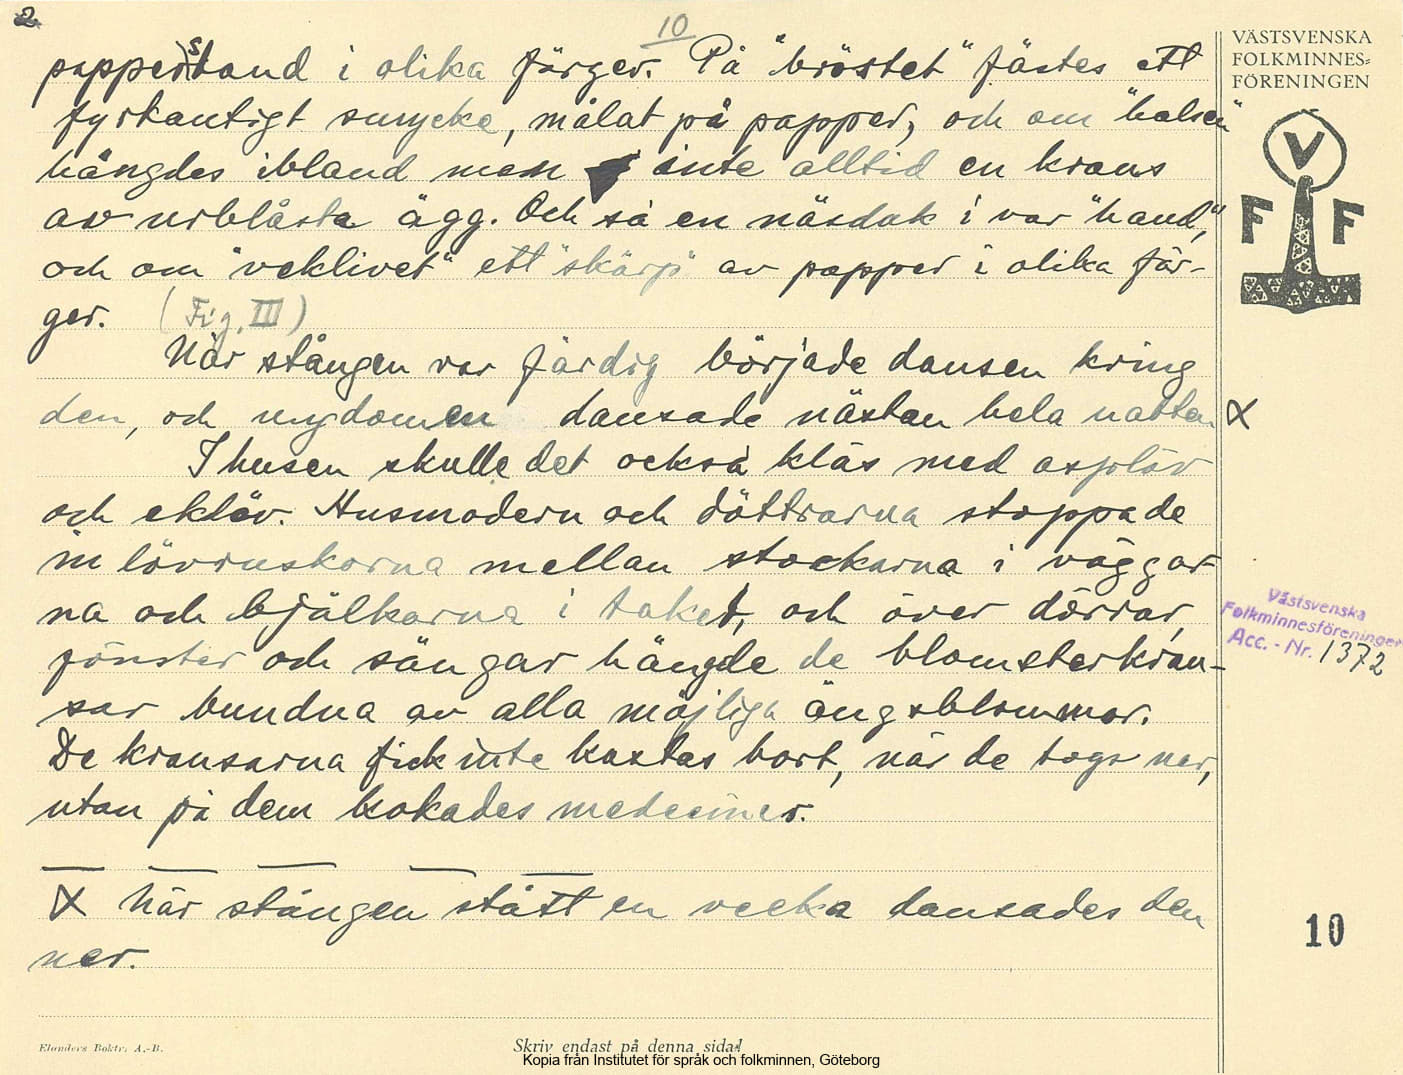 2
10
pappersband i olika färger. På "bröstet" fästes ett
fyrkantigt smycke, målat på papper, och om "halsen"
hängdes ibland men inte alltid en krans
av urblåsta ägg. Och så en näsduk i var "hand,"
och om "veklivet" ett "skärp" av papper i olika fär-
ger. (Fig. III)
När stången var färdig började dansen kring
den, och ungdomen dansade nästan hela natten X
I husen skulle det också kläs med asplöv
och eklöv. Husmodern och döttrarna stoppade
in lövruskorna mellan stockarna i väggar-
na och bjälkarna i taket, och över dörrar,
fönster och sängar hängde de blomsterkran-
sar bundna av alla möjliga ängsblommor.
De kransarna fick inte kastas bort, när de togs ner,
utan på dem kokades mediciner.
X När stången stått en vecka dansades den
ner.
VÄSTSVENSKA
FOLKMINNES-
FÖRENINGEN
V
F F
Västsvenska
Folkminnesföreningen
Acc. - Nr. 1372
10
Elanders Boktr. A.-B.
Skriv endast på denna sida!
Kopia från Institutet för språk och folkminnen, Göteborg